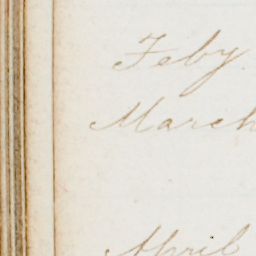 Feby
March
April